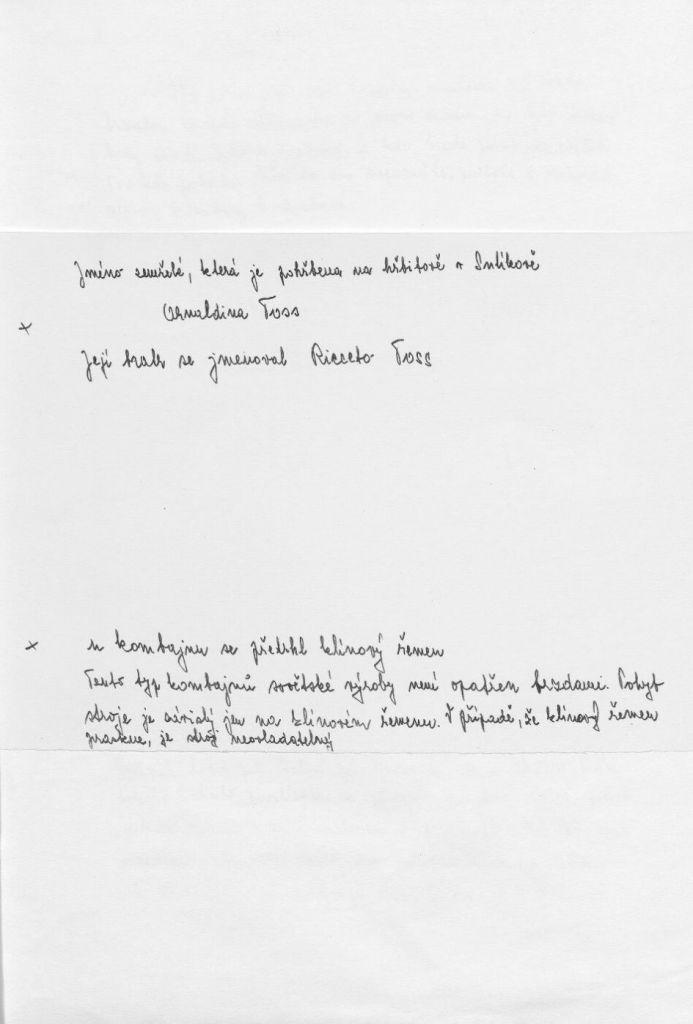 Jméno zemřelé, která je pohřbena na hřbitově v Sulíkově
Arnaldina Toss
x
Její bratr se jmenoval Ricceto Toss
x u kombajnu se přetrhl klínový řemen
Tento typ kombajnů sovětské výroby není opatřen brzdami. Pohyb
stroje je závislý jen na klínovém řemenu. V případě, že klínový řemen
praskne, je stroj neovladatelný